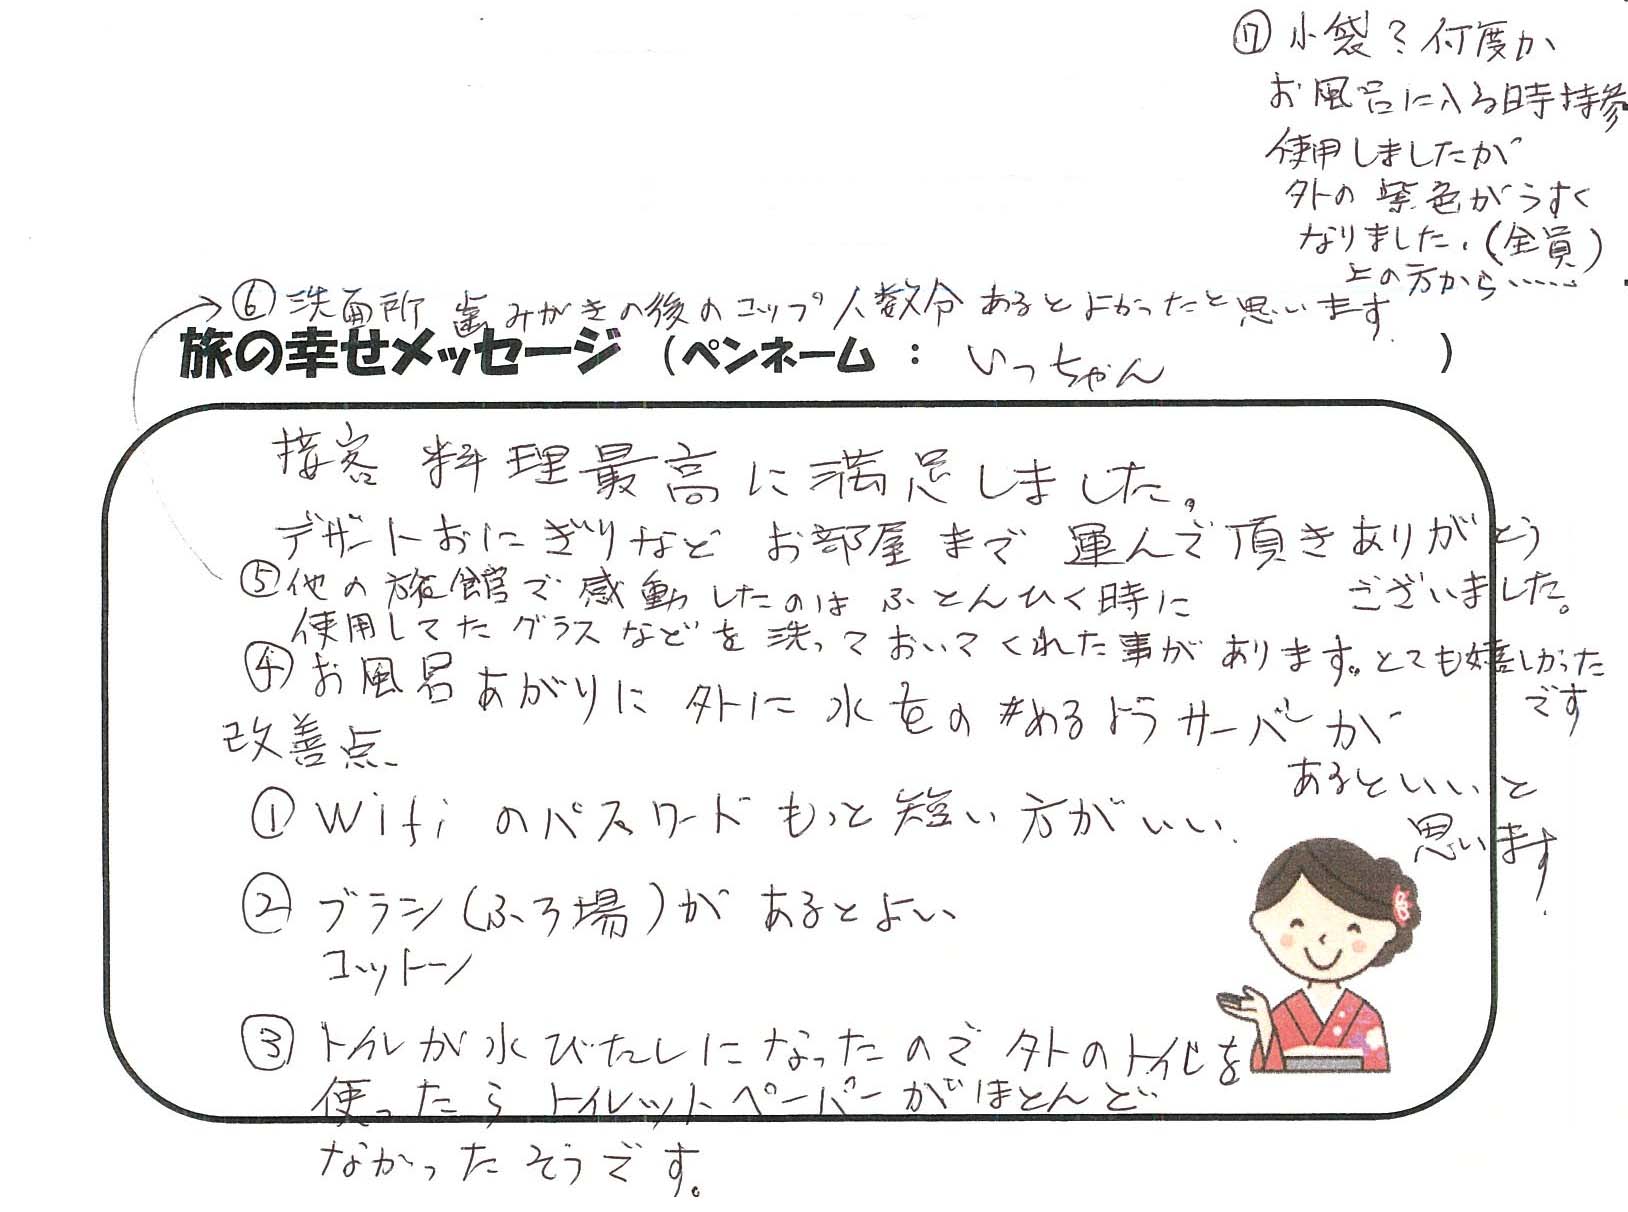 ⑦ 小袋？何度か
お風呂に入る時持参
使用しましたが
外の 紫色がうすく
なりました。(全員)
上の方から……
→⑥ 洗面所 歯みがきの後のコップ 人数分 あるとよかったと思います
旅の幸せメッセージ （ペンネーム ： いっちゃん ）
接客 料理最高に満足しました。
デザートおにぎりなど お部屋まで 運んで頂きありがとう
ございました。
⑤他の旅館で感動したのは ふとんひく時に
使用してた グラス などを 洗っておいてくれた事が あります。とても嬉しかった
です
④お風呂あがりに 外に 水をのめるようサーバーが
あるといいと
思います
改善点
① Wifi のパスワードもっと短い方がいい
② ブラシ(ふろ場)が あるとよい
コットン
③ トイレが水びたしになったので 外のトイレを
使ったら トイレットペーパーがほとんど
なかったそうです。